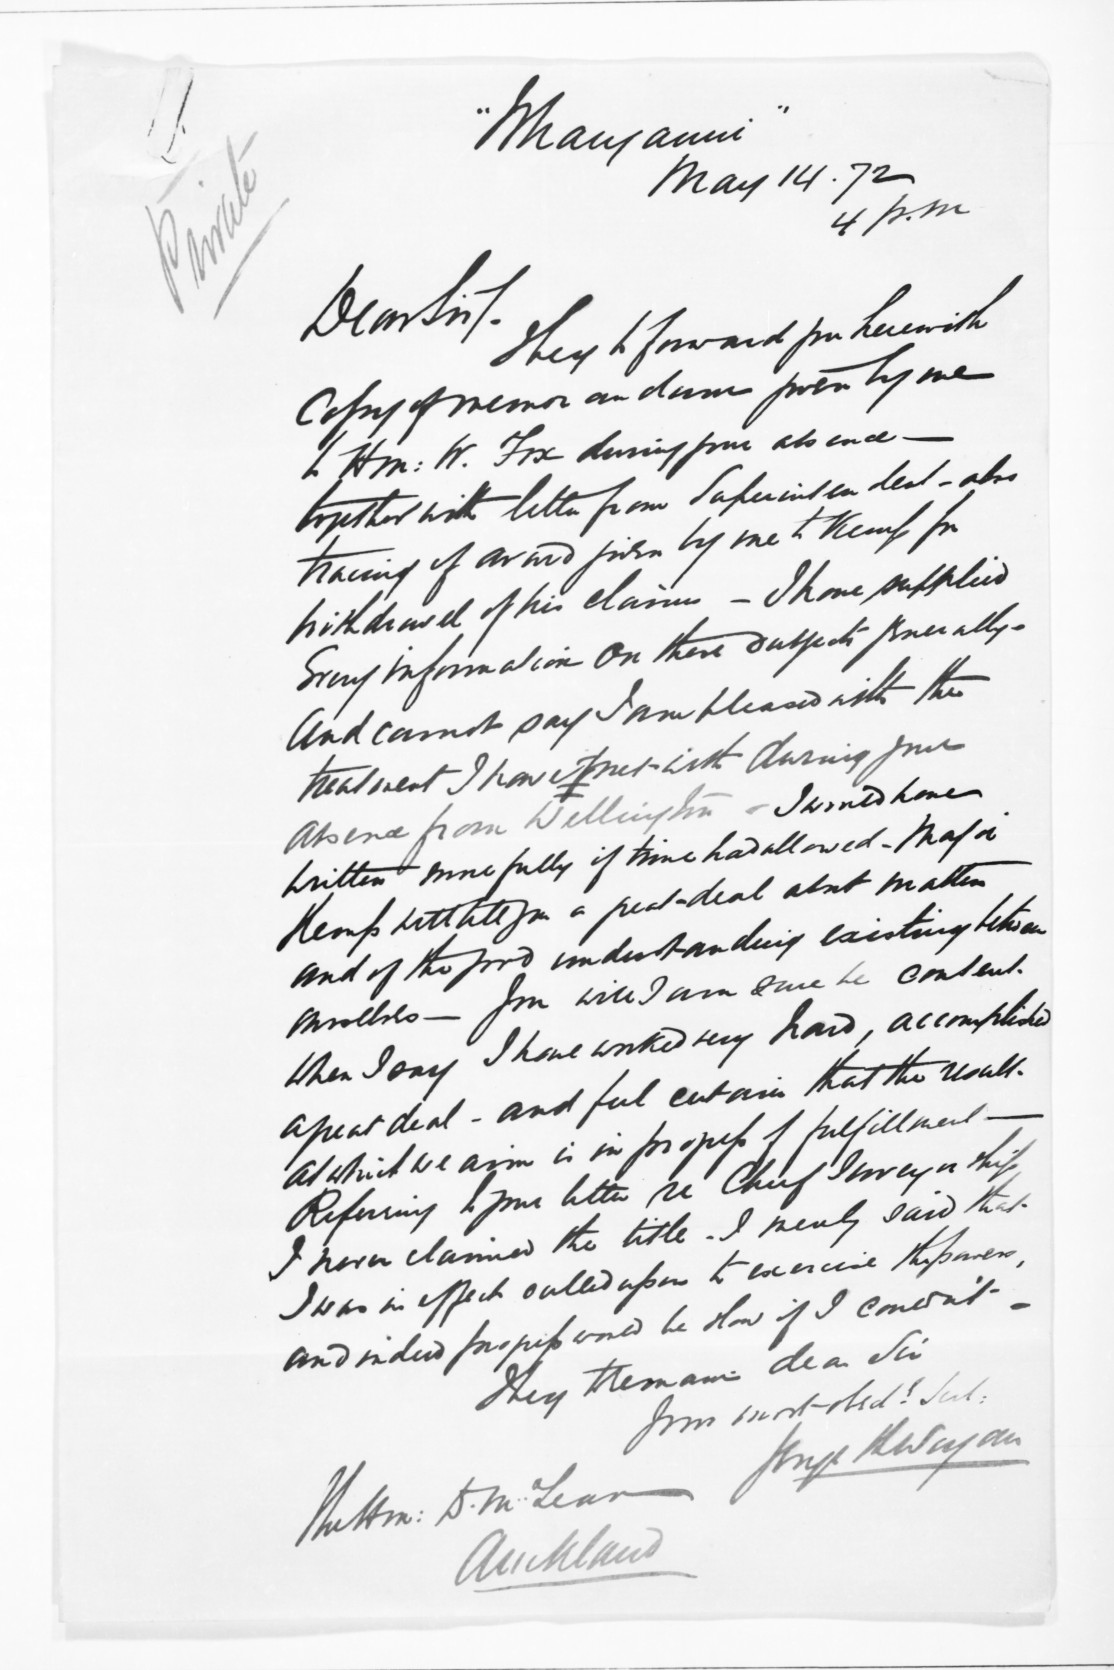 Private
"Whanganui"
May 14. 72
4 p.m
Dear Sir/.
I beg to forward you herewith
Copy of memorandum given by me
to Hon: W. Fox during your absence —
together with letter from Superintendent - also
tracing of award given by me to Kemp for
withdrawal of his claims — I have supplied
Every information on these subjects generally -
And cannot say I am pleased with the
treatment I have met with during your
absence from Wellington - I would have
written more fully if time had allowed - Major
Kemp will tell you a great deal about matters
and of the good understanding existing between
ourselves — You will I am sure be content
when I say I have worked very hard, accomplished
a great deal - and feel certain that the result
at which we aim is in progress of fulfillment —
Referring to your letter re Chief Surveyorship
I never claimed the title - I merely said that
I was in effect called upon to exercise the powers,
and indeed progress would be slow if I couldn't -
I beg to remain dear Sir
Your most obedt. Servt:
The Hon: D. McLean
Auckland